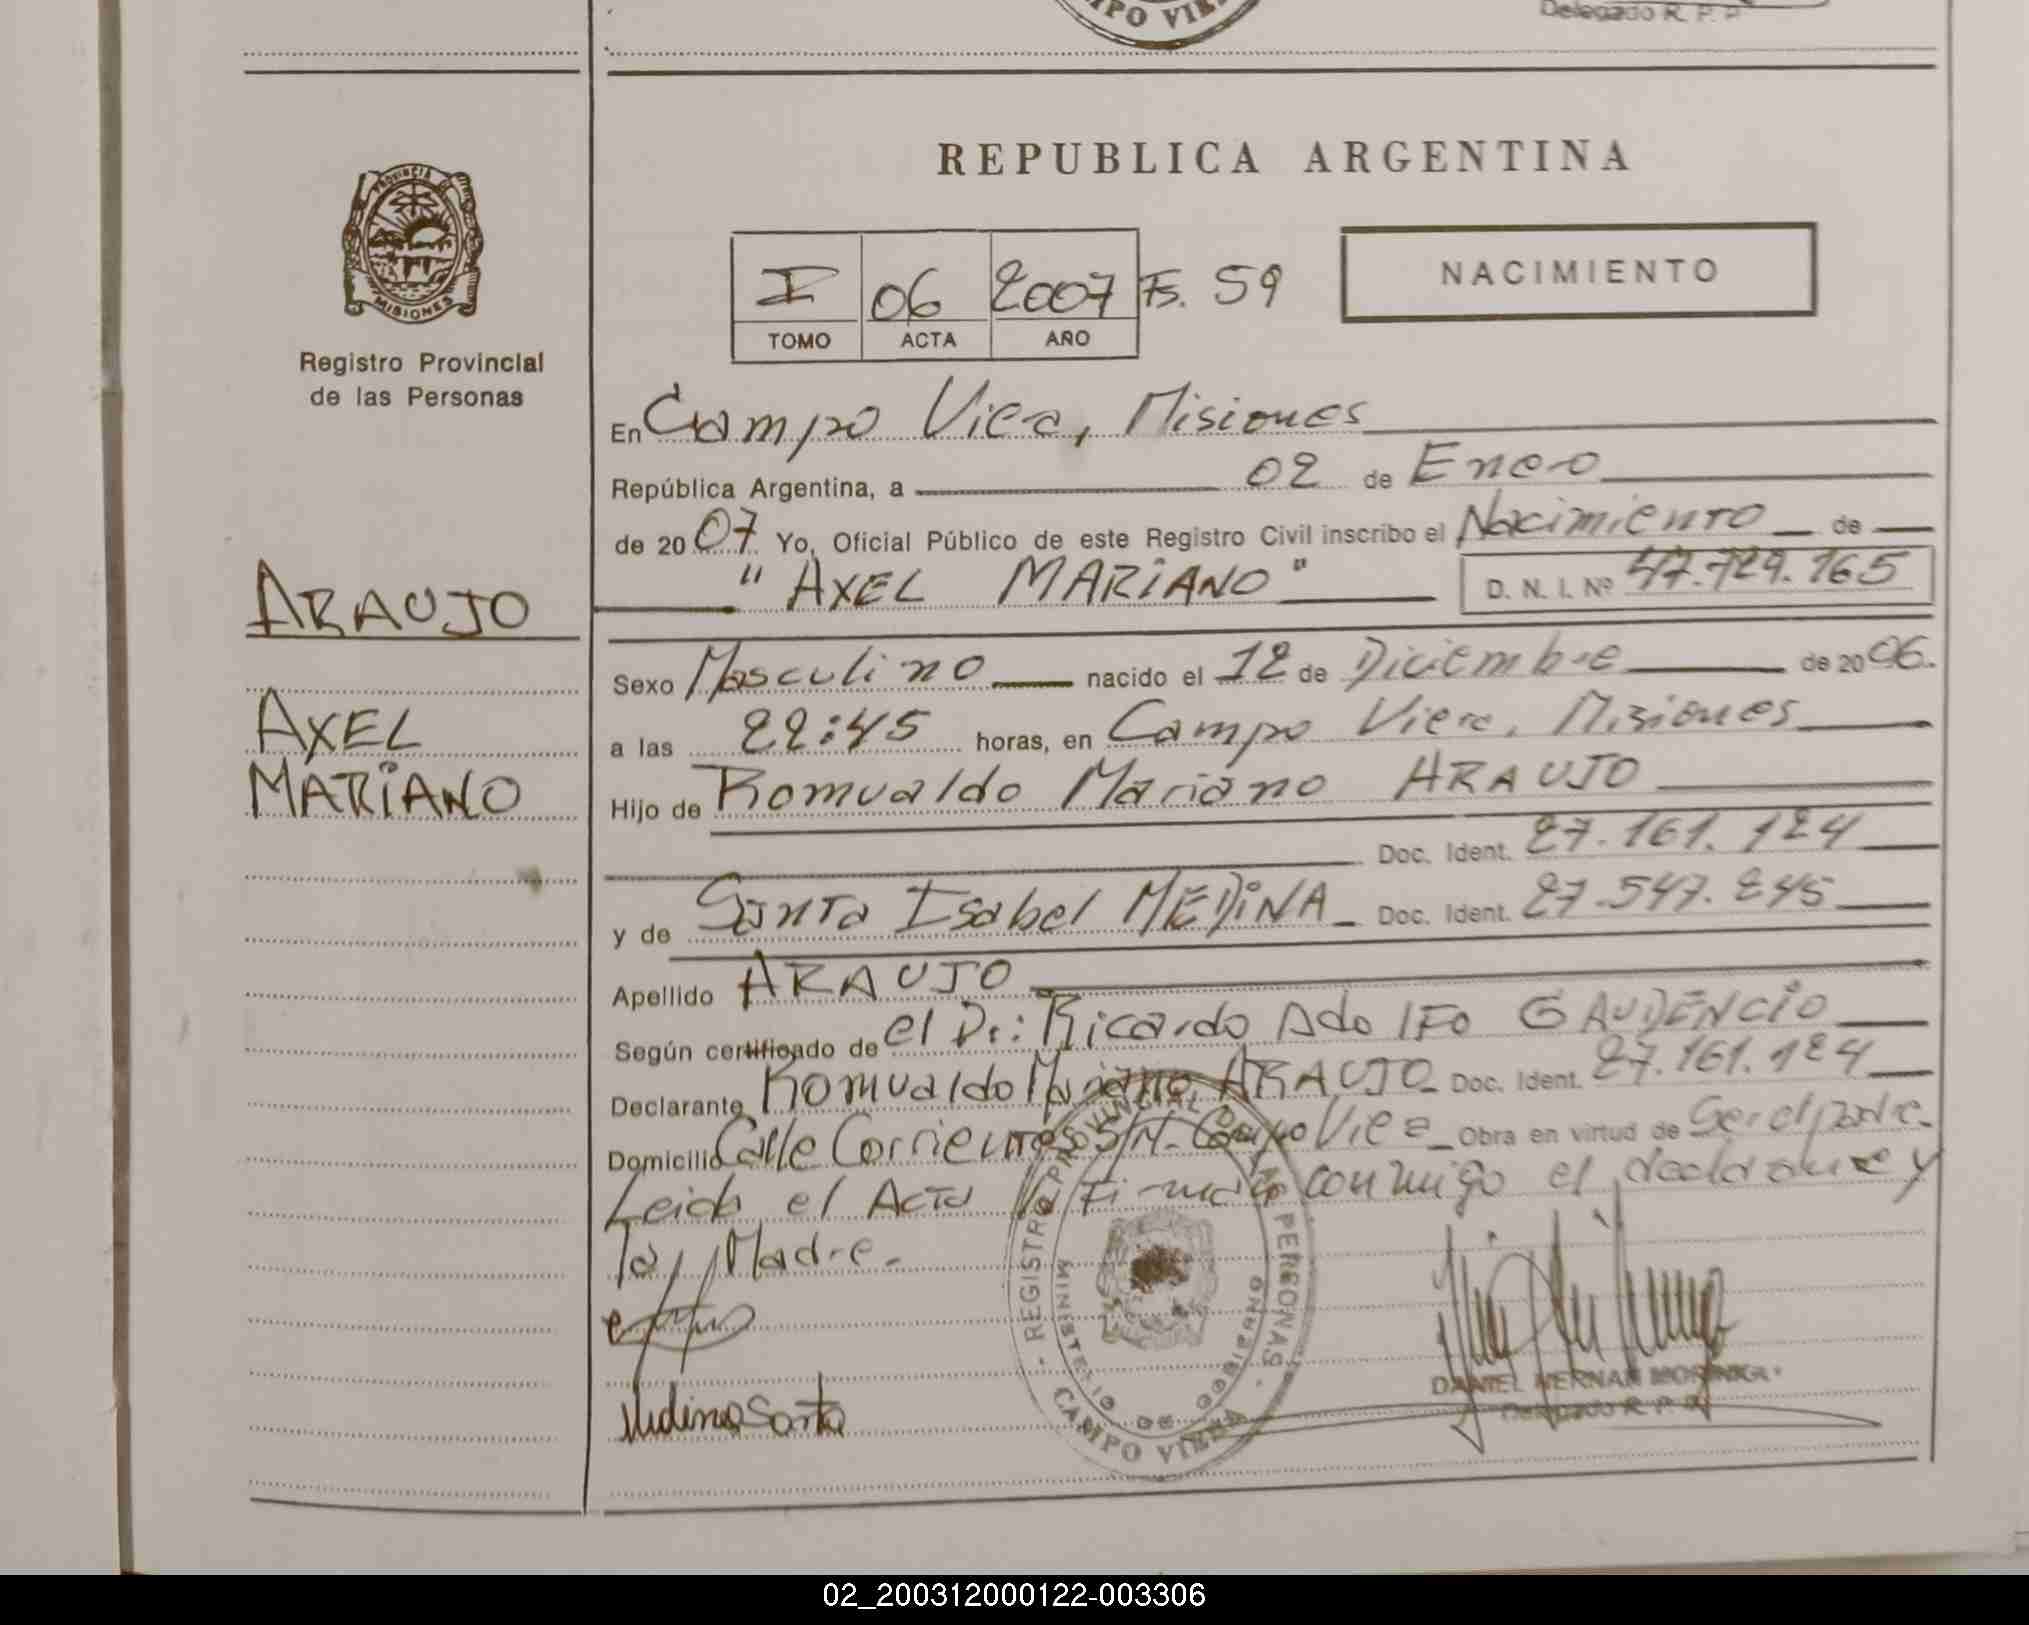 CAMPO VIERA
Delegado R. P. P
REPUBLICA ARGENTINA
PROVINCIA DE
MISIONES
Registro Provincial
de las Personas
I 06 2007 Fs. 59
TOMO ACTA AÑO
NACIMIENTO
En Campo Viera, Misiones
República Argentina, a 02 de Enero
de 2007 Yo, Oficial Público de este Registro Civil inscribo el Nacimiento de
"AXEL MARIANO" D. N. I. Nº 47.729.165
ARAUJO
AXEL
MARIANO
Sexo Masculino nacido el 12 de Diciembre de 2006.
a las 22:45 horas, en Campo Viera, Misiones
Hijo de Romualdo Mariano ARAUJO
Doc. Ident. 27.161.124
y de Santa Isabel MEDINA Doc. Ident. 27.547.245
Apellido ARAUJO
Según certificado de el Dr.: Ricardo Adolfo GAUDENCIO
Declarante Romualdo Mariano ARAUJO Doc. Ident. 27.161.124
Domicilio Calle Corrientes S/N- Campo Viera Obra en virtud de Ser el padre.
Leida el Acta la Firman conmigo el declarante y
la Madre.
Medina Santa
REGISTRO PROVINCIAL DE LAS PERSONAS
MINISTERIO DE GOBIERNO
CAMPO VIERA
DANIEL HERNAN
Delegado R. P. P.
02_200312000122-003306